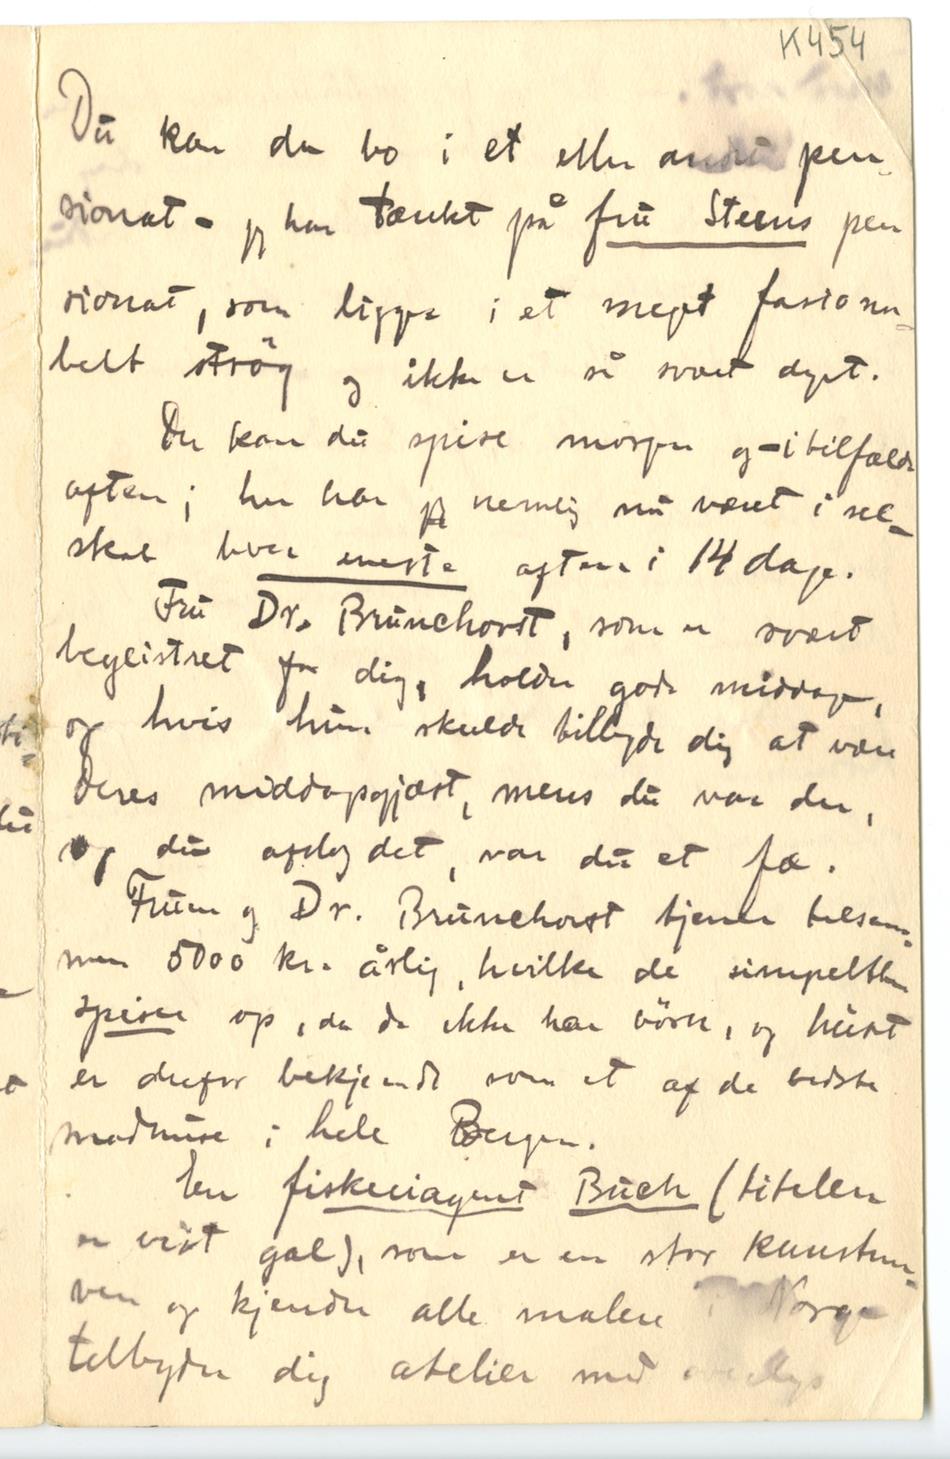 K454
Du kan da bo i et eller andet pen-
sionat – jeg har tænkt på fru Steens pen
sionat, som ligger i et meget fasiona-
belt strög og ikke er så svært dyrt.
Der kan du spise morgen og – i tilfælde
aften; her har jeg nemlig nu været i sel-
skab hver eneste aften i 14 dage.
Fru Dr. Brunchorst, som er svært
begeistret for dig, holder gode middage,
og hvis hun skulde tilbyde dig at være
deres middagsgjæst, mens du var der,
og du afslog det, var du et fæ.
Fruen og Dr. Brunchorst tjener tilsam-
men 5000 kr. årlig, hvilke de simpelthen
spiser op, da de ikke har börn, og huset
er derfor bekjendt som et af de bedste
madhuse i hele Bergen.
En fiskeriagent Buch (titelen
er vist gal), som er en stor kunstn-
ven og kjender alle malere i Norge
tilbyder dig atelier med overlys
ti-